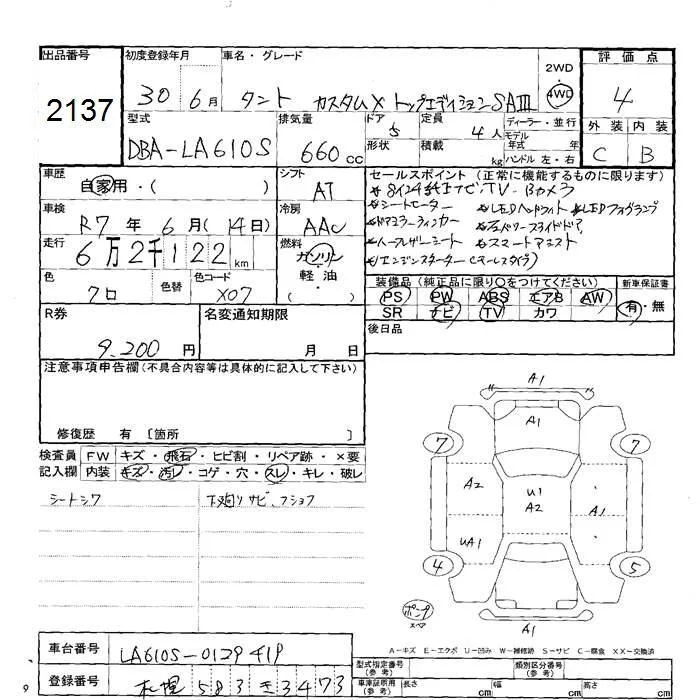 出品番号
2137
初度登録年月
30 6月
車名・グレード
タント カスタムX トップエディションSAⅢ
2WD
4WD
評価点
4
外装 内装
C B
型式
DBA-LA610S
排気量
660 cc
ドア
5
形状
定員
4人
積載
kg
ディーラー・並行
モデル
年式 年
ハンドル 左・右
車歴
自家用・( )
車検
R7年6月(14日)
走行
6万2千122km
色
クロ
色替
色コード
X07
シフト
AT
冷房
AAC
燃料
ガソリン
軽油
( )
セールスポイント (正常に機能するものに限ります)
シートヒーター LEDヘッドライト LEDフォグランプ
ドアミラーウィンカー
ハーフレザーシート スマートアシスト
エンジンスターター
装備品(純正品に限り○をつけてください)
PS PW ABS エアB AW
SR ナビ TV カワ
新車保証書
有・無
後日品
R券
9,200 円
名変通知期限
月 日
注意事項申告欄(不具合内容等は具体的に記入して下さい)
修復歴 有 〔箇所 〕
検査員
記入欄
FW キズ・飛石・ヒビ割・リペア跡・×要
内装 キズ・汚レ・コゲ・穴・スレ・キレ・破レ
シートシワ
下廻りサビ、フショク
A1
A1
7
7
A2
U1
A2
A1
UA1
4
5
ポンプ
スペア
A1
A-キズ E-エクボ U-凹み W-補修跡 S-サビ C-腐食 XX-交換済
車台番号
LA610S-0129419
登録番号
札幌 583 き 3473
型式指定番号
(参考)
類別区分番号
(参考)
車庫証明用
(参考)
長さ cm
幅 cm
高さ cm